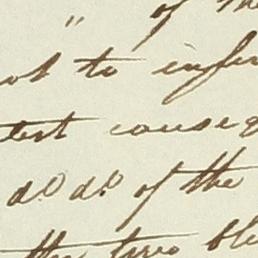 " of the
not to infer
test conseq
do do of the
the two ble